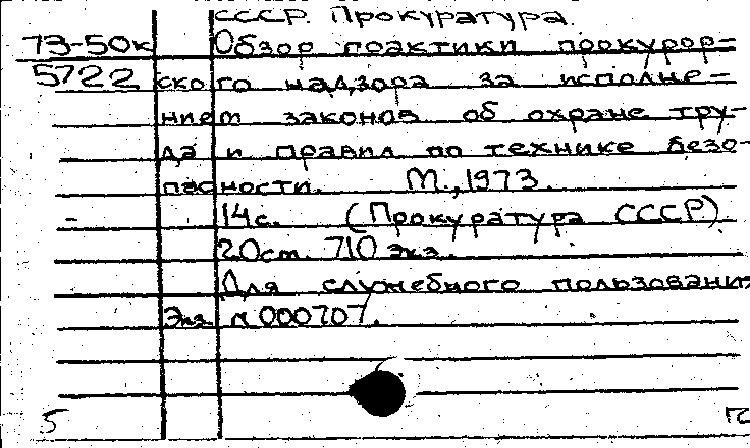 СССР. Прокуратура.
73-50к Обзор практики прокурор=
5722 ского надзора за исполне=
нием законов об охране тру-
да и правил по технике безо-
пасности. М., 1973.
14с. (Прокуратура СССР)
20см. 710 экз.
Для служебного пользования
Экз. № 000707.
5